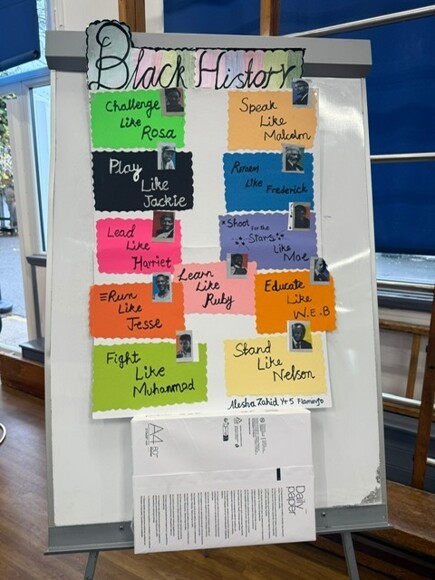 Black History
Challenge
Like
Rosa
Speak
Like
Malcolm
Play
Like
Jackie
Like
Frederick
Lead
Like
Harriet
Shoot For the
Stars
Like
Mae
Learn
Like
Ruby
Run
Like
Jesse
Educate
Like
W.E.B
Fight
Like
Muhammad
Stand
Like
Nelson
Alesha Zahid Yr 5 Flamingo
A4
Daily
paper